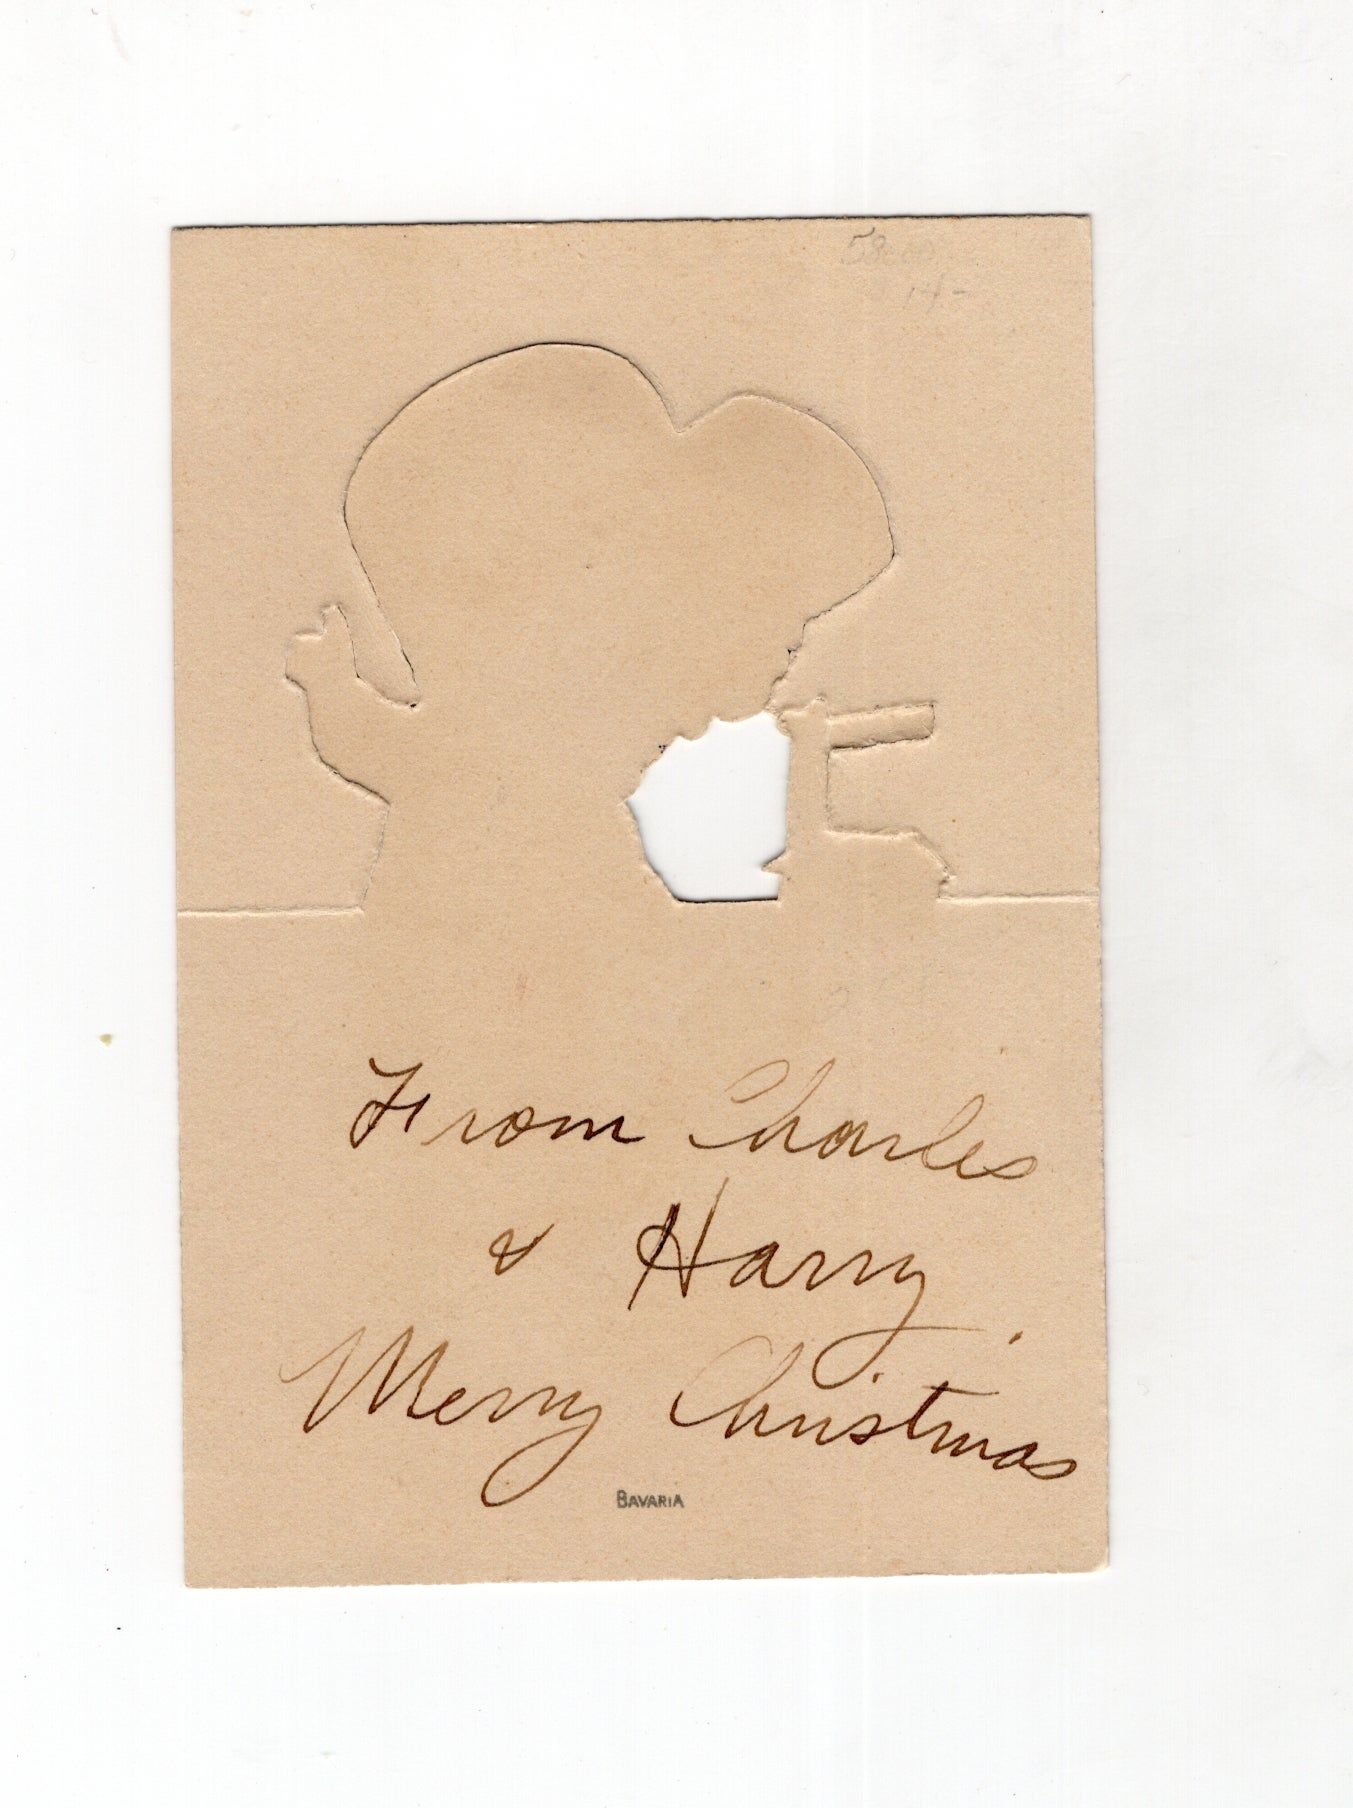 From Charles
& Harry.
Merry Christmas
BAVARIA